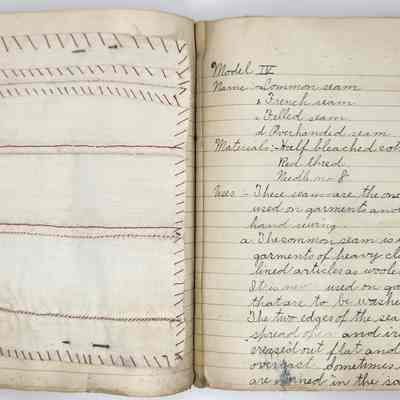 Model IV
Name:- a Common seam
b French seam
c Felled seam
d Overhanded seam
Materials:- Half bleached cot
Red thred
Needle no 8
Uses:- These seams are the one
used on garments and
hand sewing.
a. The common seam is u
garments of heavy clo
lined articles as woole
It is never used on ga
that are to be washe
The two edges of the sea
spread open and ir
creased out flat and
overcast Sometimes
are turned in the sa